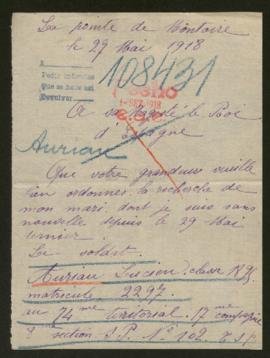 La pointe de Montoire
le 29 Mai 1918
A
Pedir informes
que se halle en el
108431
1 - SET. 1918
A sa Majesté le Roi
d'Espagne
Auriau
Que votre grandeur veuille
bien ordonner la recherche de
mon mari, dont je suis sans
nouvelle depuis le 29 Mai
dernier.
Le soldat
Auriau Lucien classe
matricule 2297
au 74me territorial. 17me compagnie
section S.P. No 102.